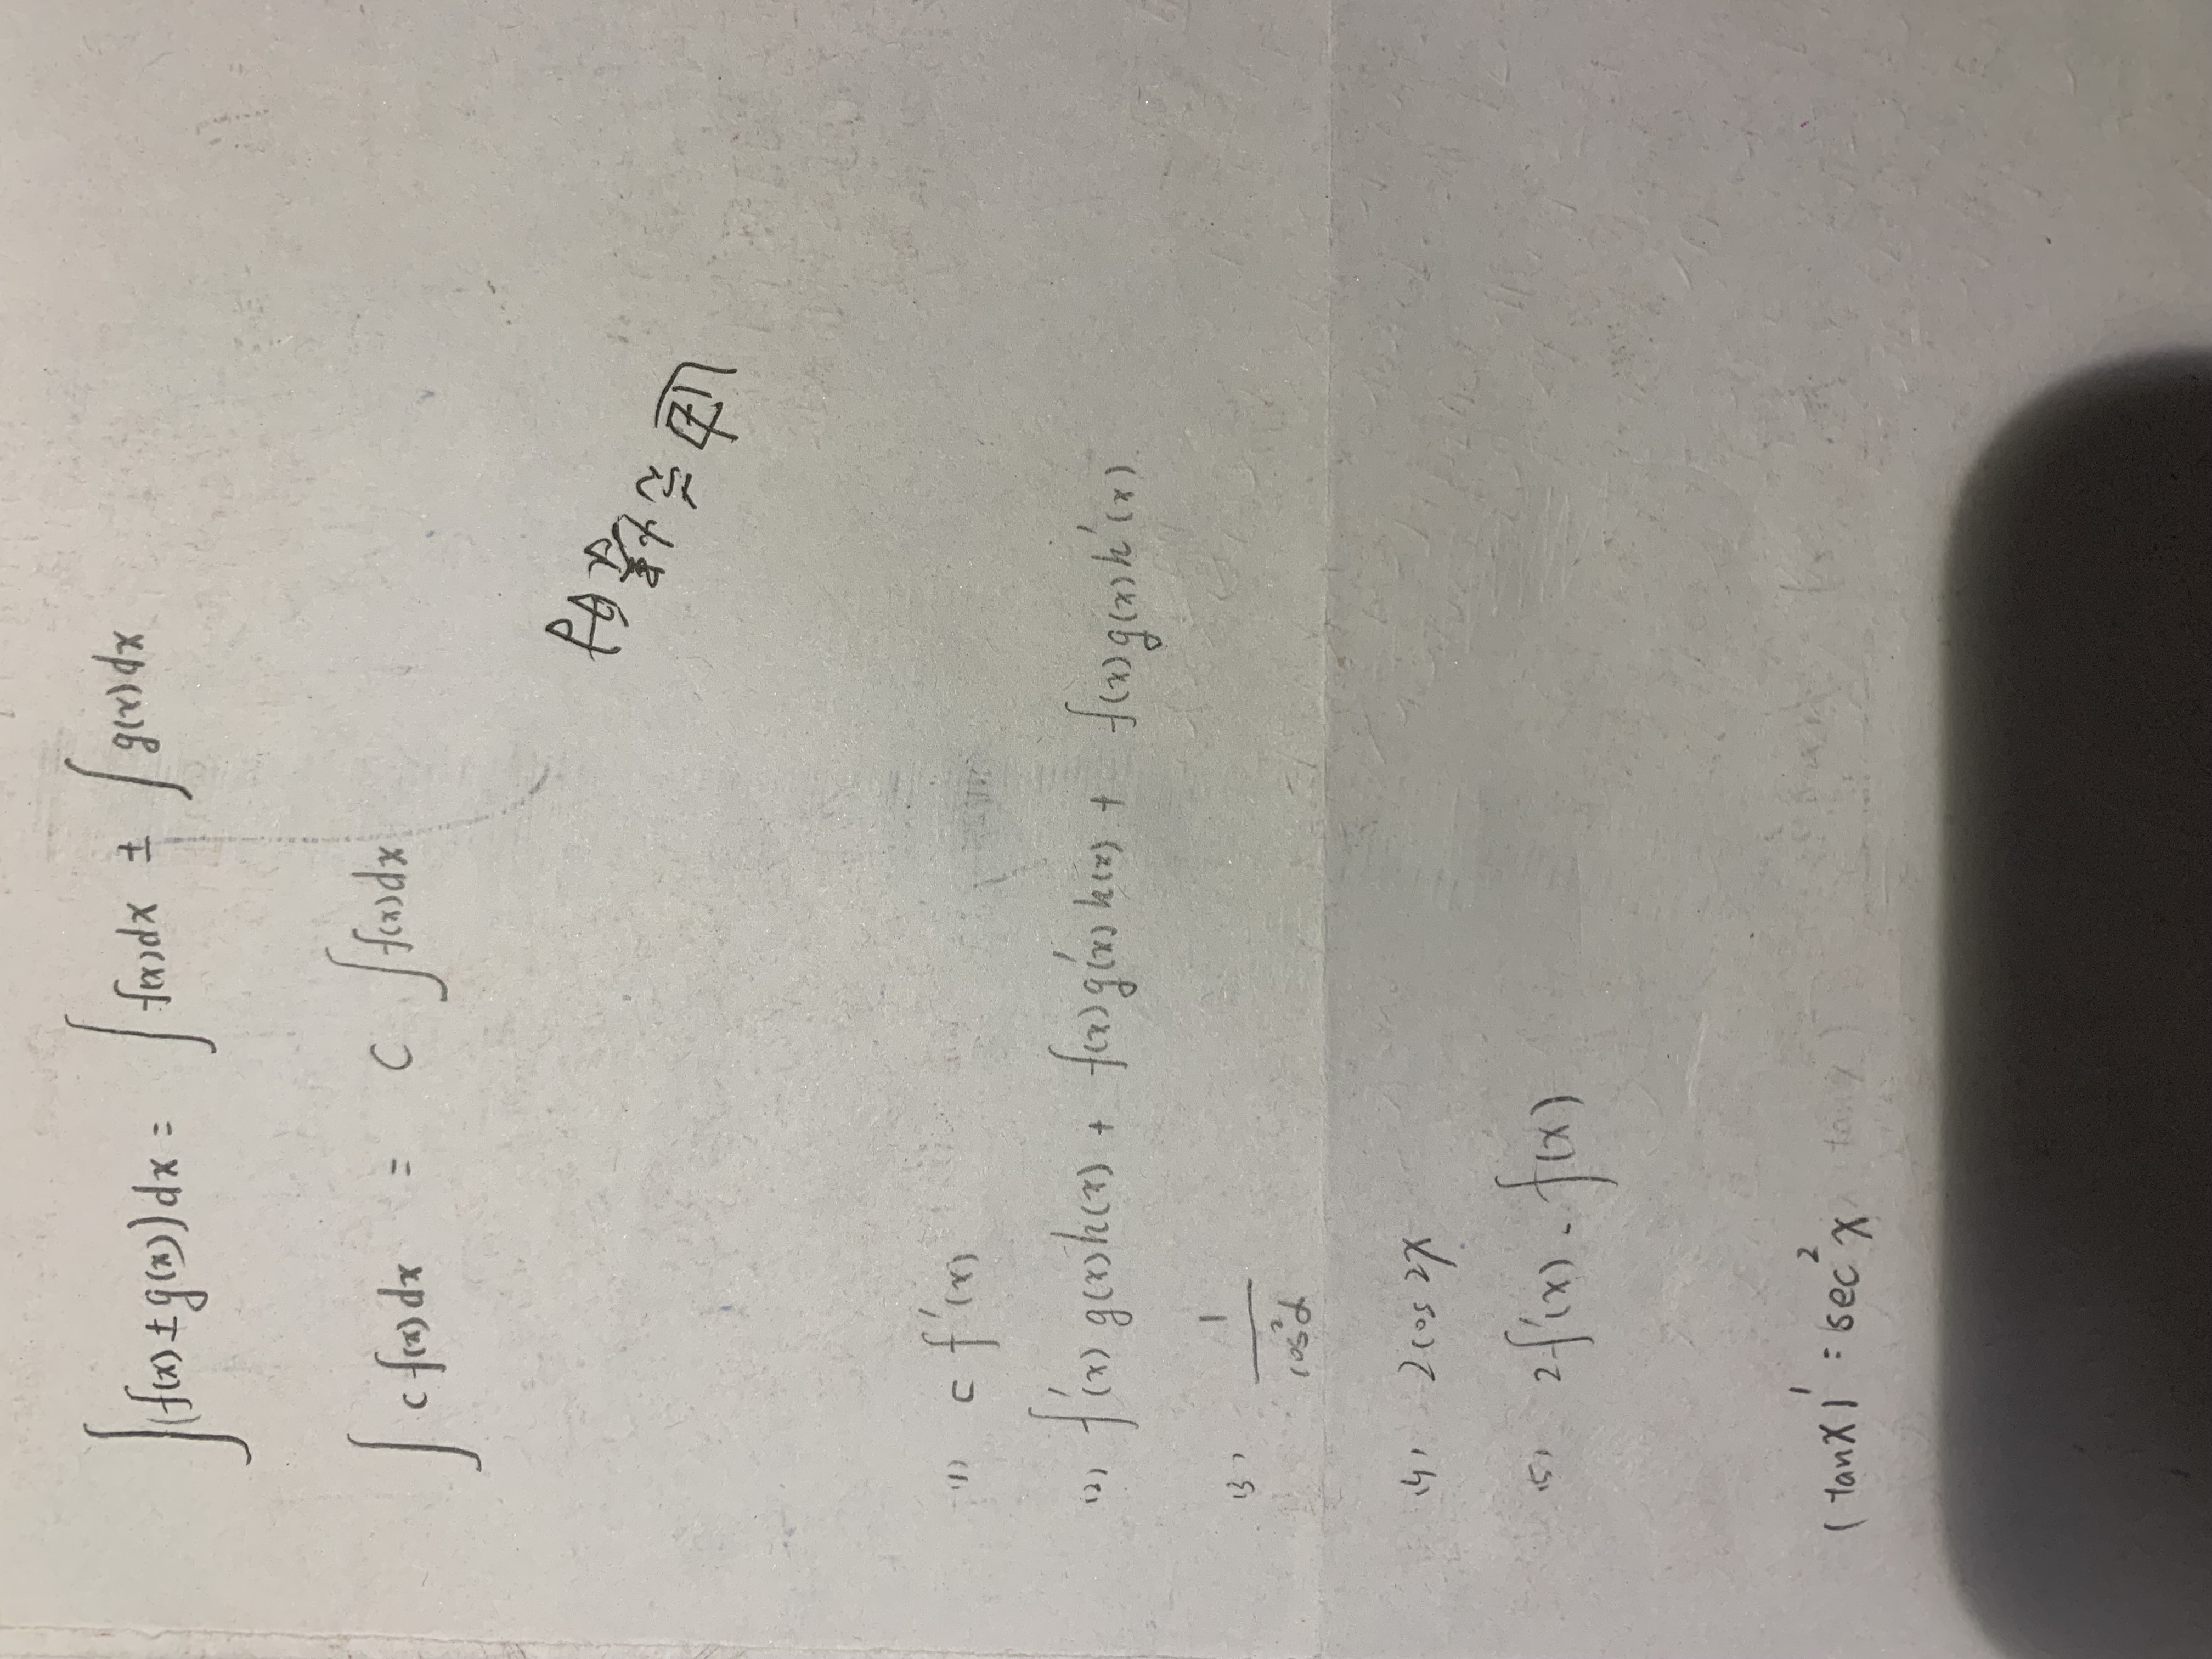 ∫(f(x)±g(x))dx = ∫f(x)dx ± ∫g(x)dx
∫c f(x)dx = C ∫f(x)dx
(1) c f'(x)
(2) f'(x) g(x)h(x) + f(x)g'(x)h(x) + f(x)g(x)h'(x)
(3) 1/cos²α
(4) 2cos2x
(5) 2f'(x)·f(x)
(tanx)' = sec²x